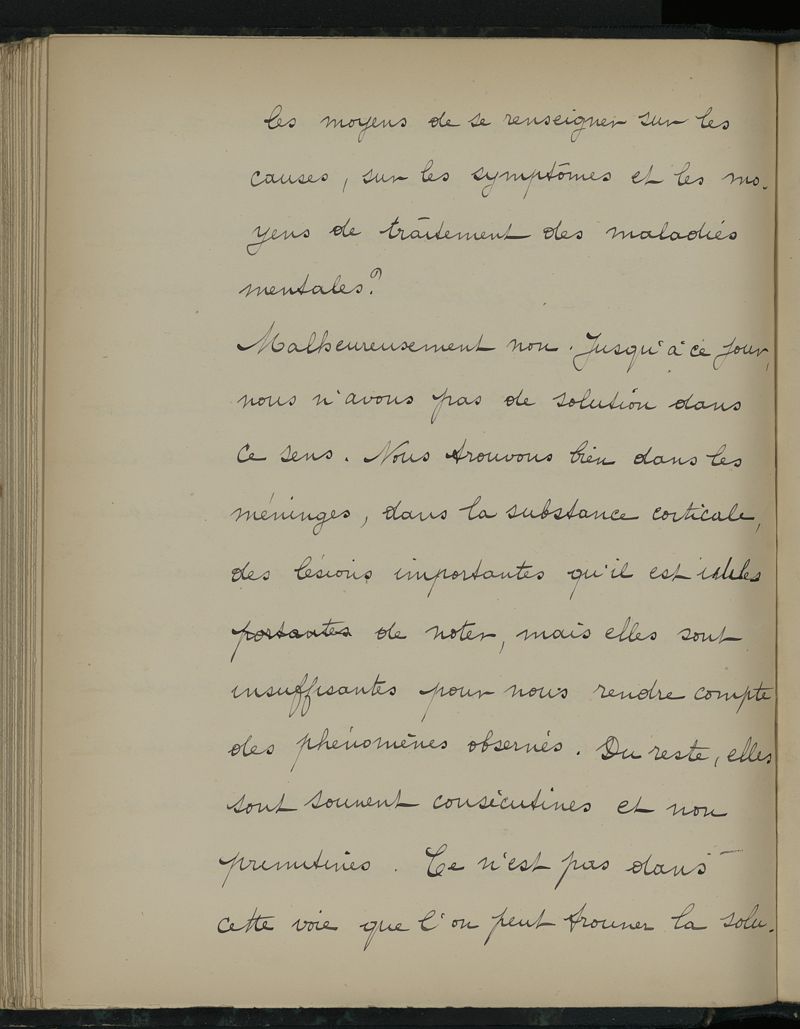 les moyens de se renseigner sur les
causes, sur les symptômes et les mo-
yens de traitement des maladies
mentales?
Malheureusement non. Jusqu'à ce jour,
nous n'avons pas de solution dans
ce sens. Nous trouvons bien dans les
méninges, dans la substance corticale,
des lésions importantes qu'il est utiles
portantes de noter, mais elles sont
insuffisantes pour nous rendre compte
des phénomènes observés. Du reste, elles
sont souvent consécutives et non
primitives. Ce n'est pas dans
cette voie que l'on peut trouver la solu-